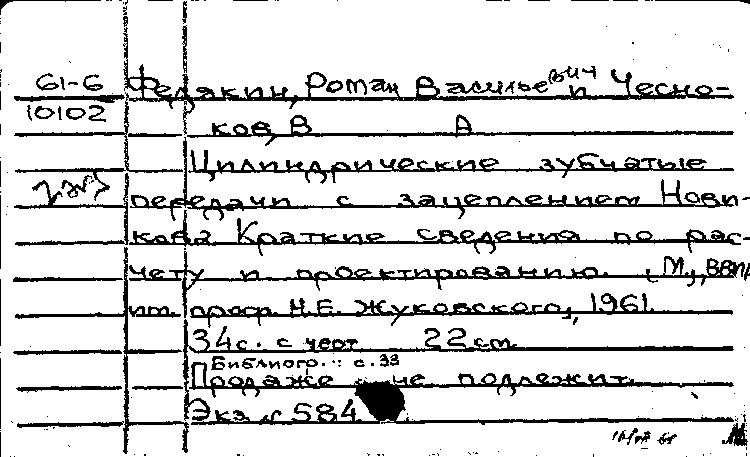 61-6 Федякин, Роман Васильевич и Чесно-
10102 ков, В А
Цилиндрические зубчатые
2 экз передачи с зацеплением Нови-
кова. Краткие сведения по рас-
чету и проектированию. [М.], ВВИА
им. проф. Н.Е. Жуковского, 1961.
34 с. с черт 22 см.
Библиогр.: с. 33
Продаже не подлежит.
Экз № 584